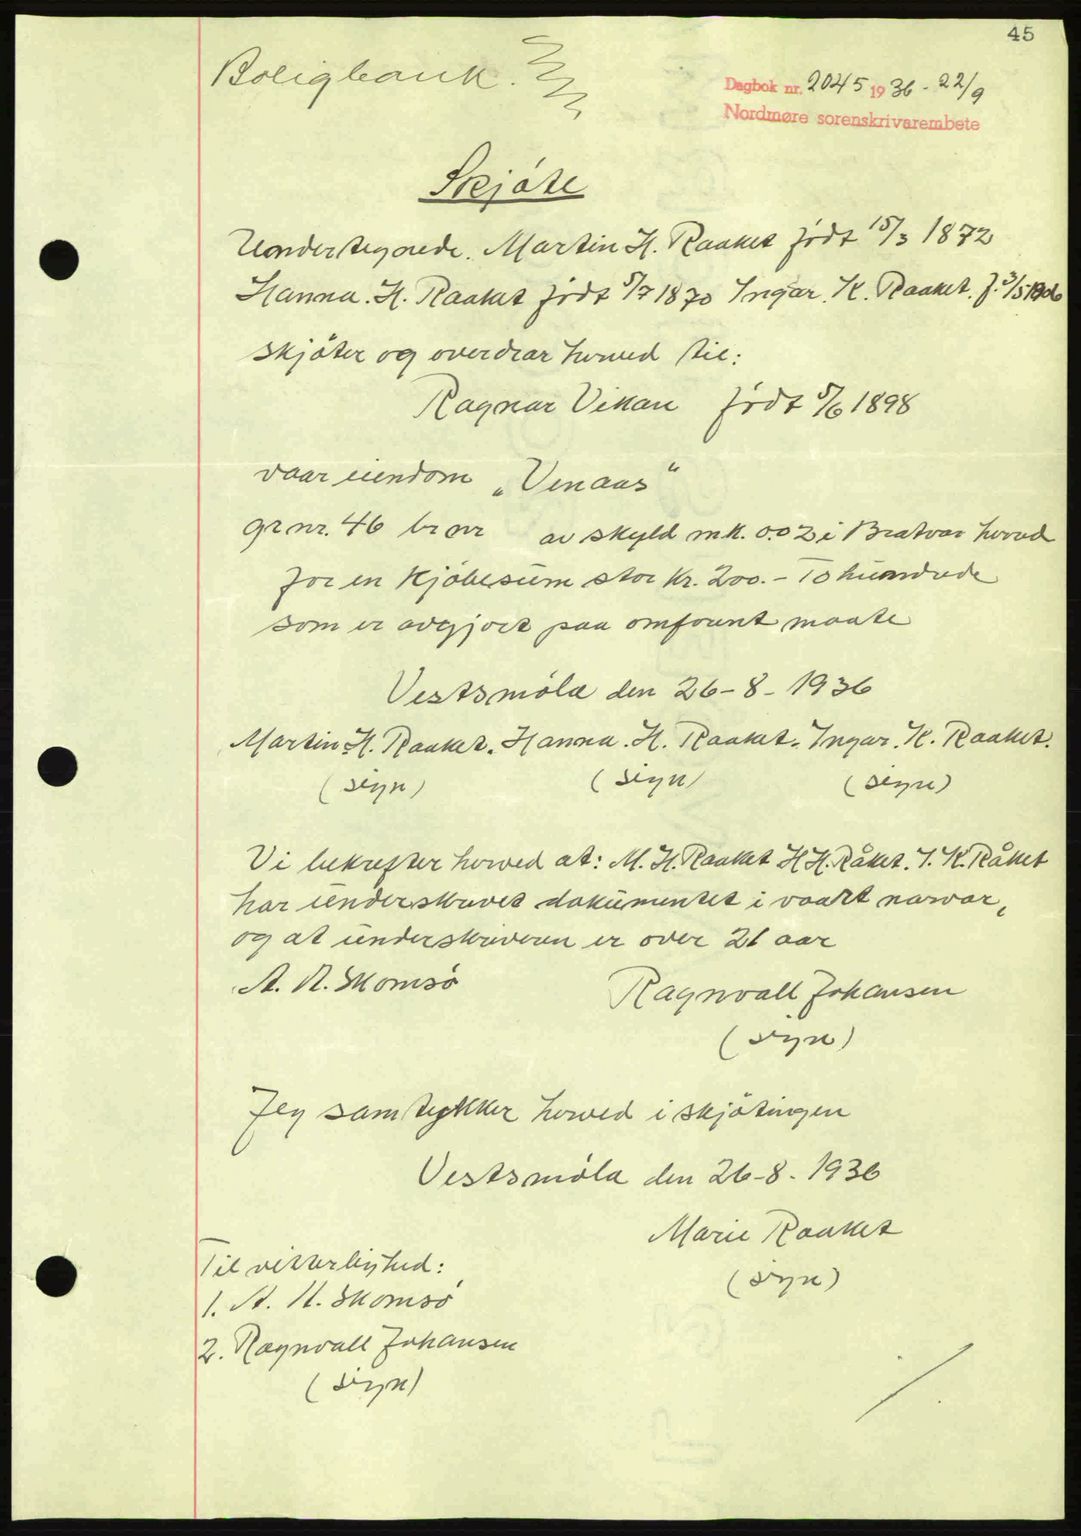 45
Boligbank.
Dagbok nr. 2045 1936 - 22/9
Nordmøre sorenskrivarembete
Skjöte
Undertegnede. Martin H. Raaket født 15/3 1872
Hanna. H. Raaket født 5/7 1870 Ingar. K. Raaket. f. 3/5 1906
skjöter og overdrar herved til:
Ragnar Vikan født 5/6 1898
vaar eiendom „Venaas"
gr nr. 46 br nr av skyld mk. 0.02 i Bratvær herred
for en kjöbesum stor kr. 200.- To hundrede
som er avgjort paa omforent maate
Vestsmöla den 26-8-1936
Martin H. Raaket. Hanna. H. Raaket. Ingar. K. Raaket.
(sign) (sign) (sign)
Vi bekrefter herved at: M. H. Raaket H H. Råket. I. K. Råket
har underskrevet dokumentet i vaart nærvær,
og at underskriveren er over 21 aar
A. N. Skomsö Ragnvall Johansen
(sign)
Jeg samtykker herved i skjötingen
Vestsmöla den 26-8-1936
Marie Raaket
(sign)
Til vitterlighed:
1. A. N. Skomsö
2. Ragnvall Johansen
(sign)